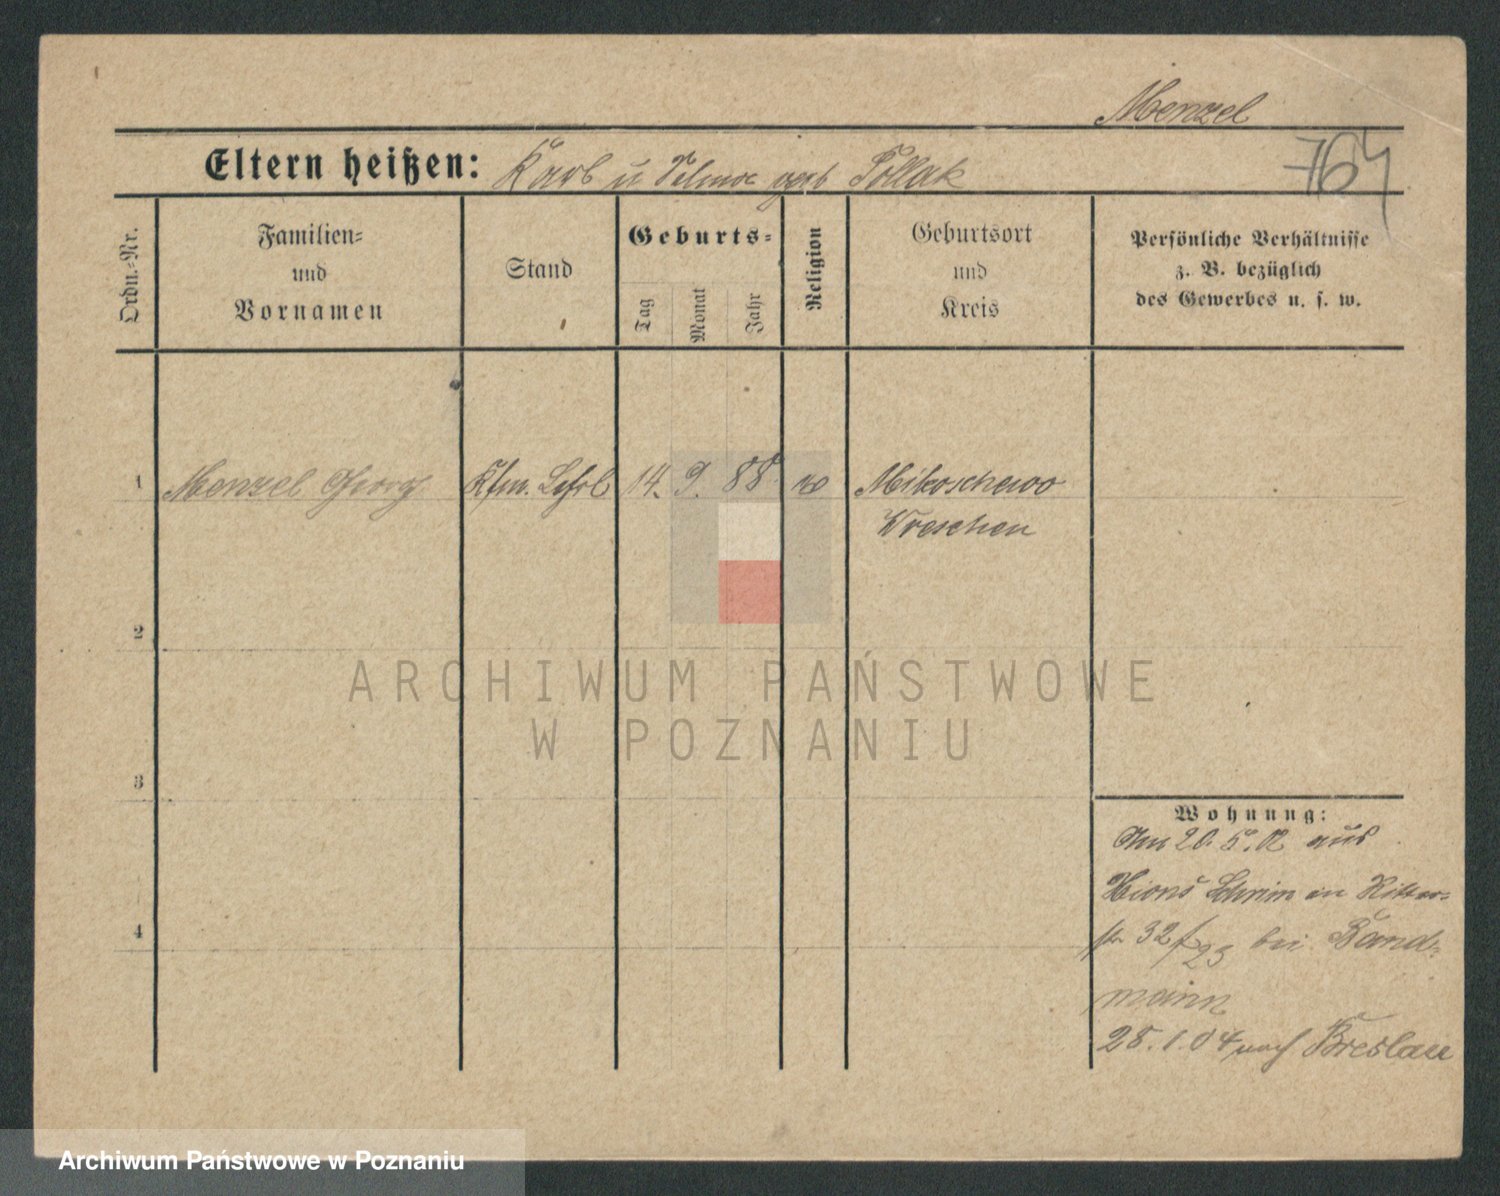 Menzel
764
Eltern heißen: Karl u Selma geb Pollak
Ordn.-Nr.
Familien-
und
Vornamen
Stand
Geburts-
Tag
Monat
Jahr
Religion
Geburtsort
und
Kreis
Persönliche Verhältnisse
z. B. bezüglich
des Gewerbes u. s. w.
1 Menzel Georg Kfm. Lehrl 14. 9. 88 Mikoschewo
Wreschen
2
3
4
Wohnung:
Am 20. 5. 02 aus
Xions Schrim in Ritter-
str 32 23 bei Band-
mann
28. 1. 04 nach Breslau
ARCHIWUM PAŃSTWOWE
W POZNANIU
Archiwum Państwowe w Poznaniu